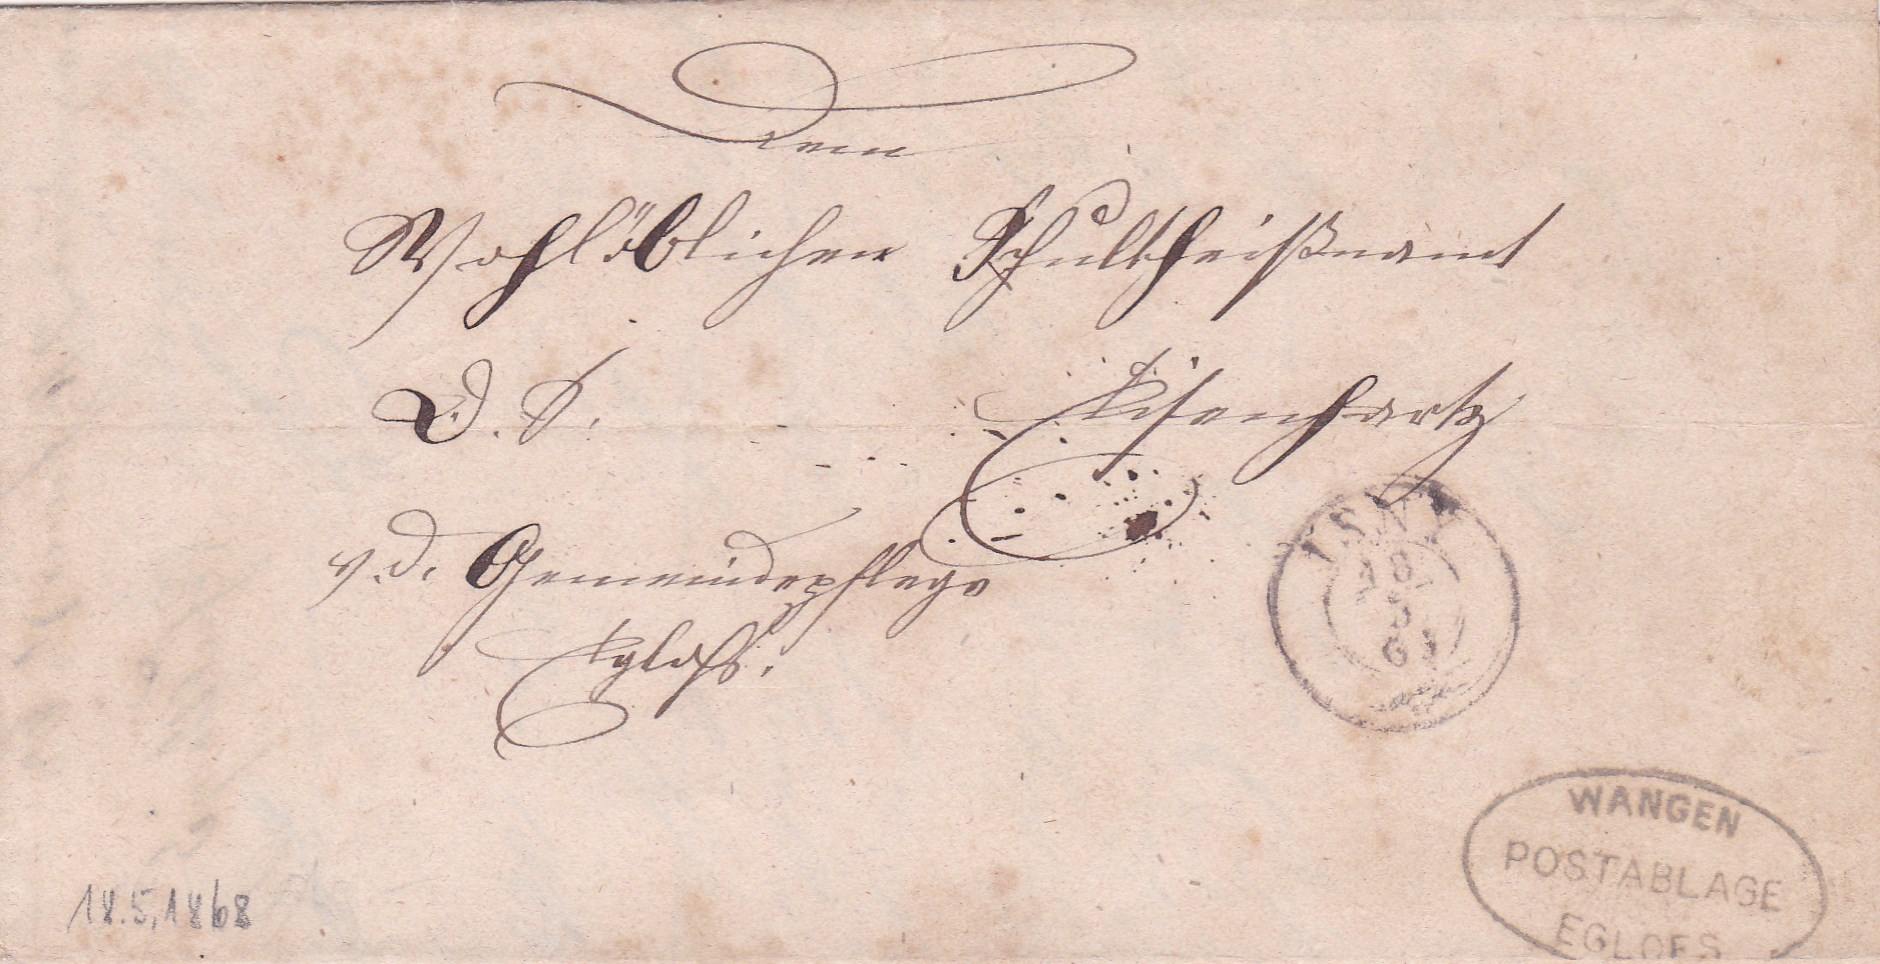 Dem
Wohllöblichen Schultheißenamt
D. S. Eisenhartz
v. d. Gemeindepflege
Egloffs.
ISNY
18
5
WANGEN
POSTABLAGE
EGLOFS
18.5.1868